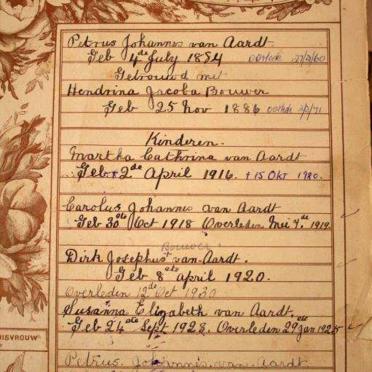 Petrus Johannes van Aardt
Geb 4de July 1884 Oorlede 27/2/60
Getrouwd met
Hendrina Jacoba Bouwer
Geb 25 Nov 1886 oorlede 2/2/71
Kinderen.
Martha Cathrina van Aardt
Geb 2de April 1916. + 15 Okt 1980.
Carolus Johannis van Aardt
Geb 30ste Oct 1918 Overleden Mei 4de 1919
Bouwer
Dirk Josephus van Aardt.
Geb 8ste April 1920.
Overleden 12de Oct 1930
Susanna Elizabeth van Aardt.
Geb 24ste Sept 1928. Overleden 29 Jan
Petrus Johannis van Aardt
ISVROUW